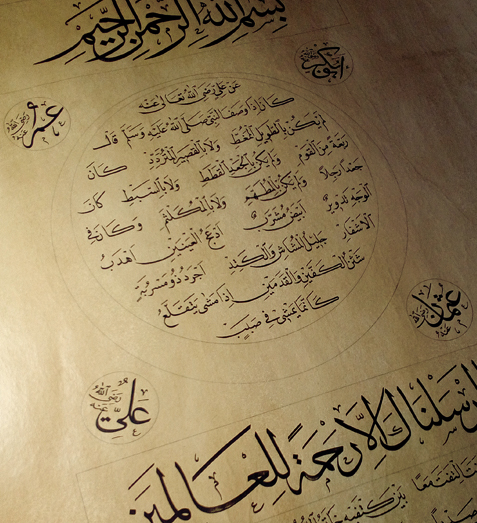 بِسْمِ اللهِ الرَّحْمٰنِ الرَّحِيْمِ
ابوبكر
عمر رضي الله عنه
عَنْ عَلِيٍّ رَضِيَ اللهُ تَعَالٰى عَنْهُ
كَانَ اِذَا وَصَفَ النَّبِيَّ صَلَّى اللهُ عَلَيْهِ وَسَلَّمَ قَالَ
لَمْ يَكُنْ بِالطَّوِيلِ الْمُمَّغِطِ وَلَا بِالْقَصِيرِ الْمُتَرَدِّدِ كَانَ
رَبْعَةً مِنَ الْقَوْمِ وَلَمْ يَكُنْ بِالْجَعْدِ الْقَطَطِ وَلَا بِالسَّبِطِ كَانَ
جَعْدًا رَجِلًا وَلَمْ يَكُنْ بِالْمُطَهَّمِ وَلَا بِالْمُكَلْثَمِ وَكَانَ فِي
الْوَجْهِ تَدْوِيرٌ اَبْيَضُ مُشْرَبٌ اَدْعَجُ الْعَيْنَيْنِ اَهْدَبُ
الْاَشْفَارِ جَلِيلُ الْمُشَاشِ وَالْكَتِدِ اَجْرَدُ ذُو مَسْرُبَةٍ
شَثْنُ الْكَفَّيْنِ وَالْقَدَمَيْنِ اِذَا مَشٰى يَتَقَلَّعُ
كَاَنَّمَا يَمْشِي فِي صَبَبٍ
عثمان رضي الله عنه
علي رضي الله عنه
رسلناك الا رحمة للعالمين
التفت معا بين كتفيه خاتم